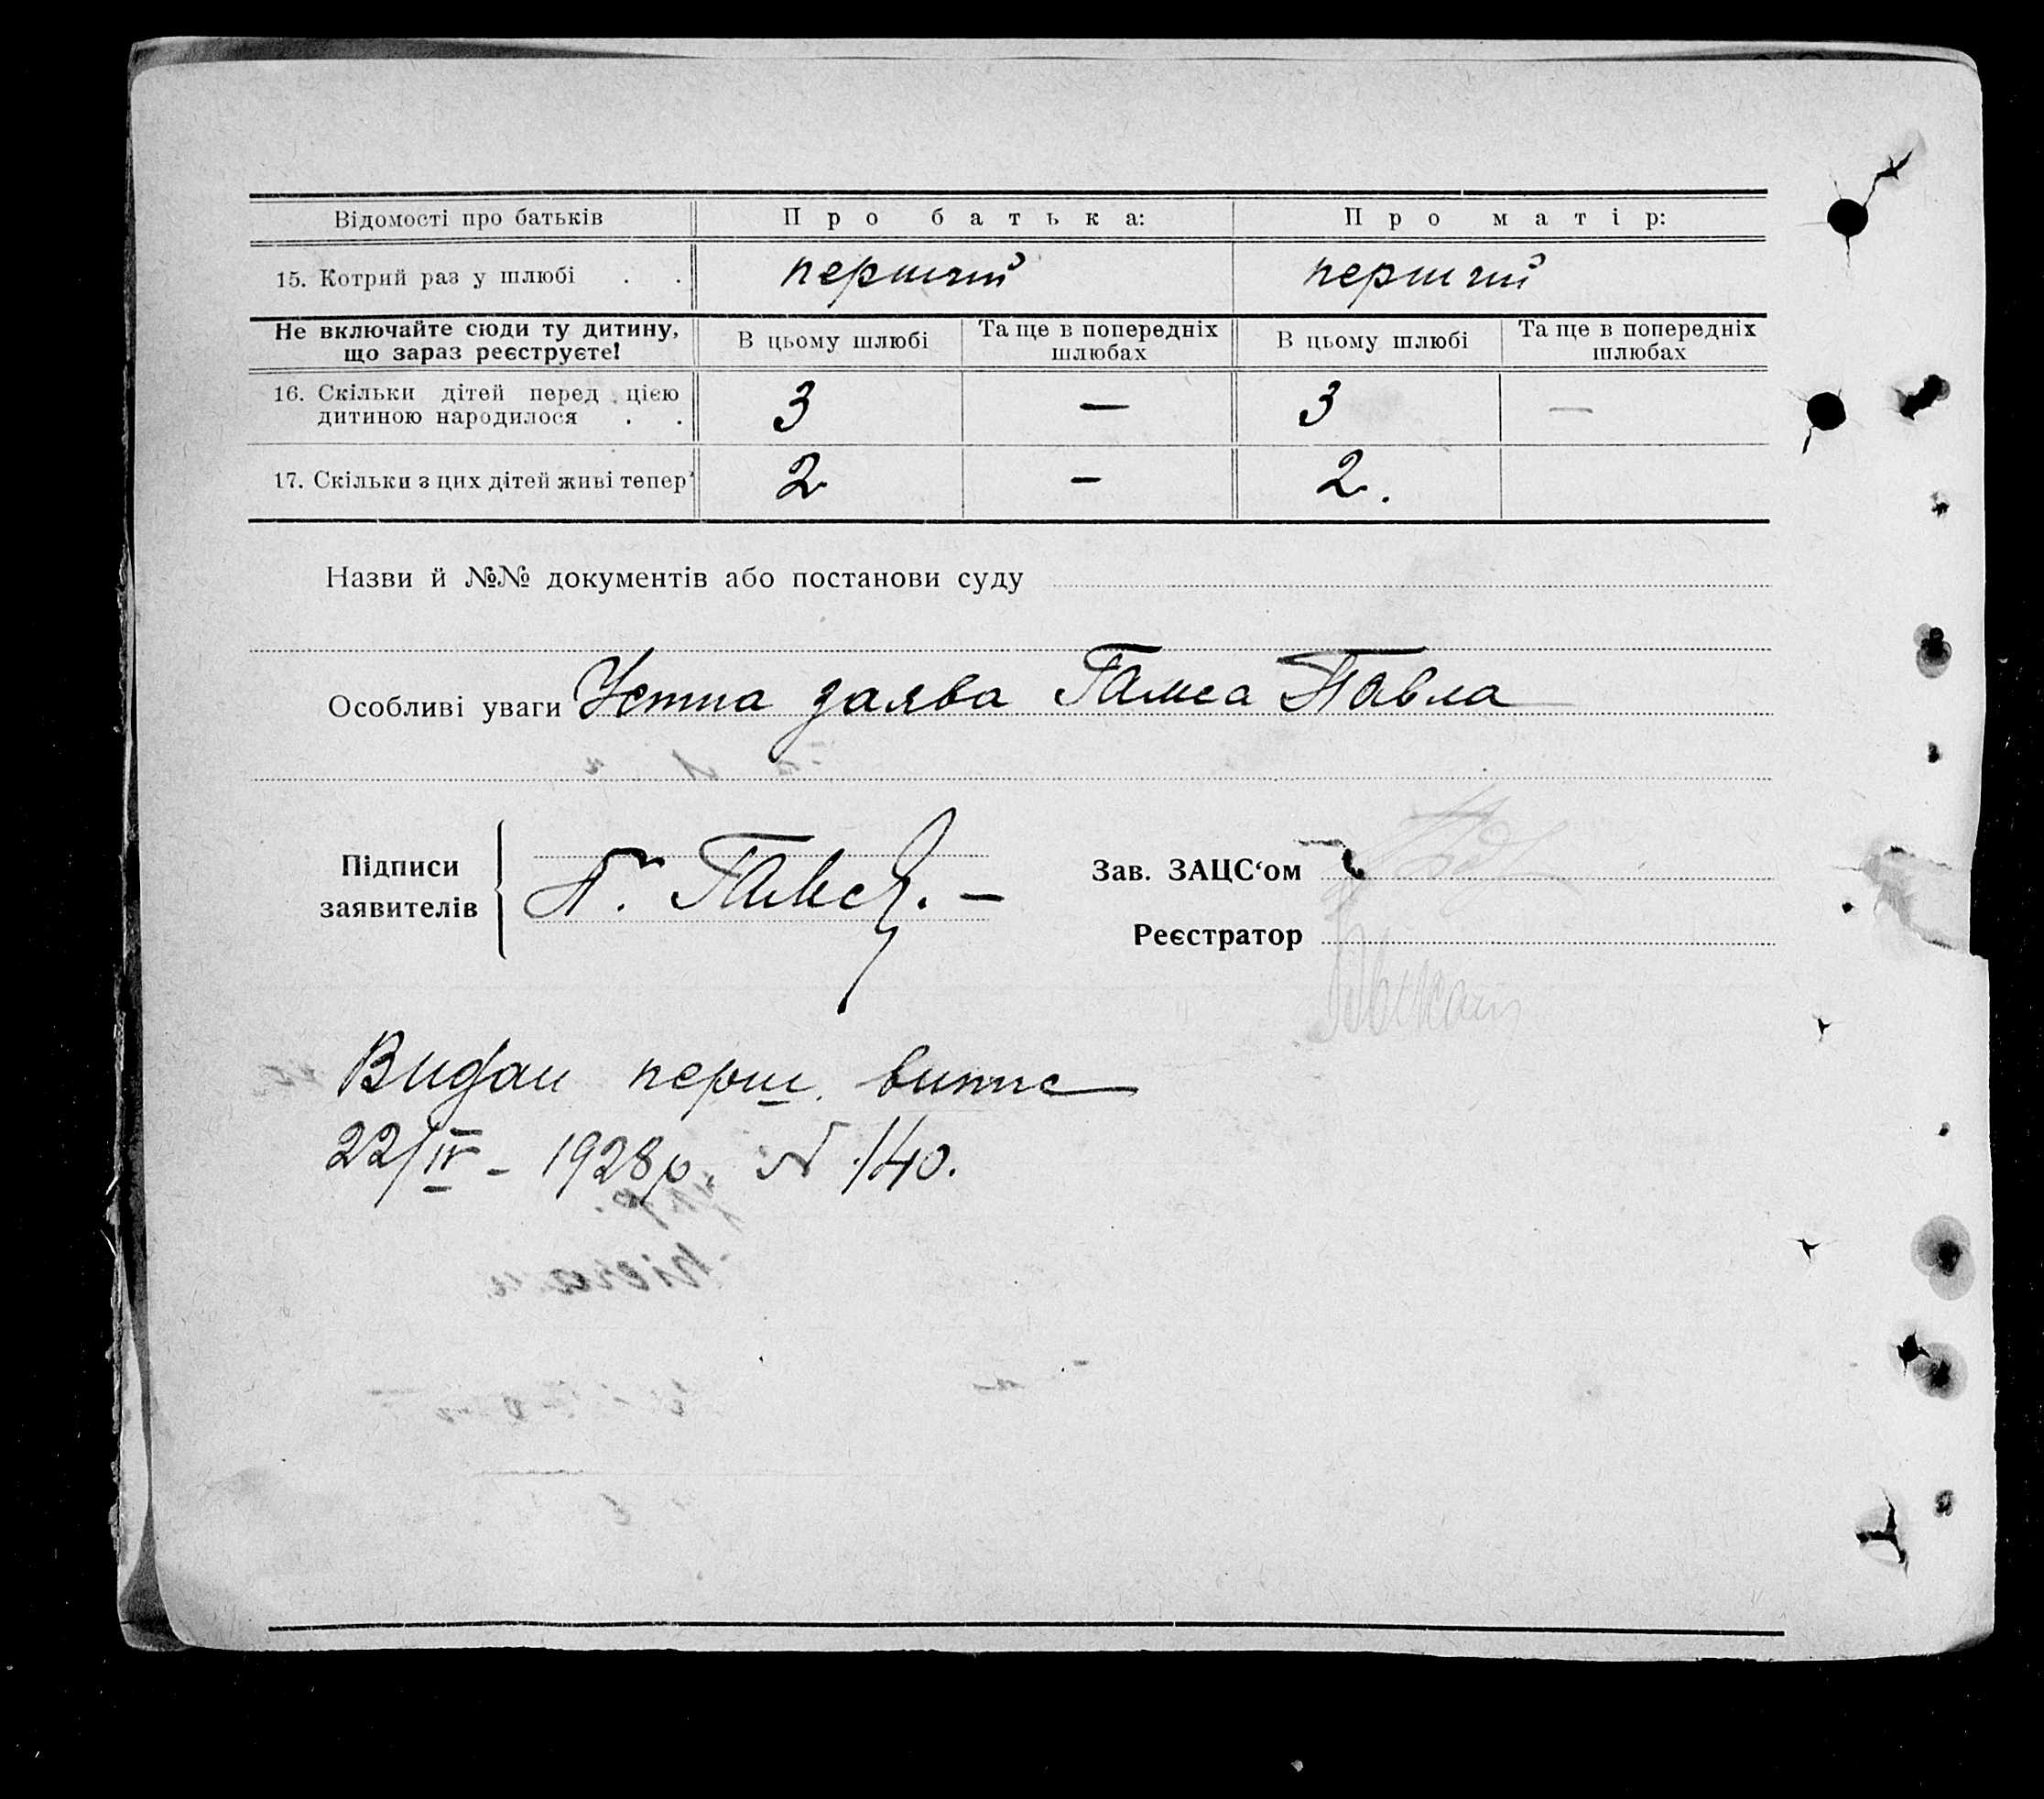 Відомості про батьків Про батька: Про матір:
15. Котрий раз у шлюбі . . перший перший
Не включайте сюди ту дитину, що зараз реєструєте! В цьому шлюбі Та ще в попередніх шлюбах В цьому шлюбі Та ще в попередніх шлюбах
16. Скільки дітей перед цією дитиною народилося . . 3 — 3 —
17. Скільки з цих дітей живі тепер 2 – 2.
Назви й №№ документів або постанови суду
Особливі уваги Устна заява Гамса Павла
Підписи заявителів П. Гамс. —
Зав. ЗАЦС‘ом
Реєстратор
Видан перш. випис
22/IV – 1928 р. N 140.